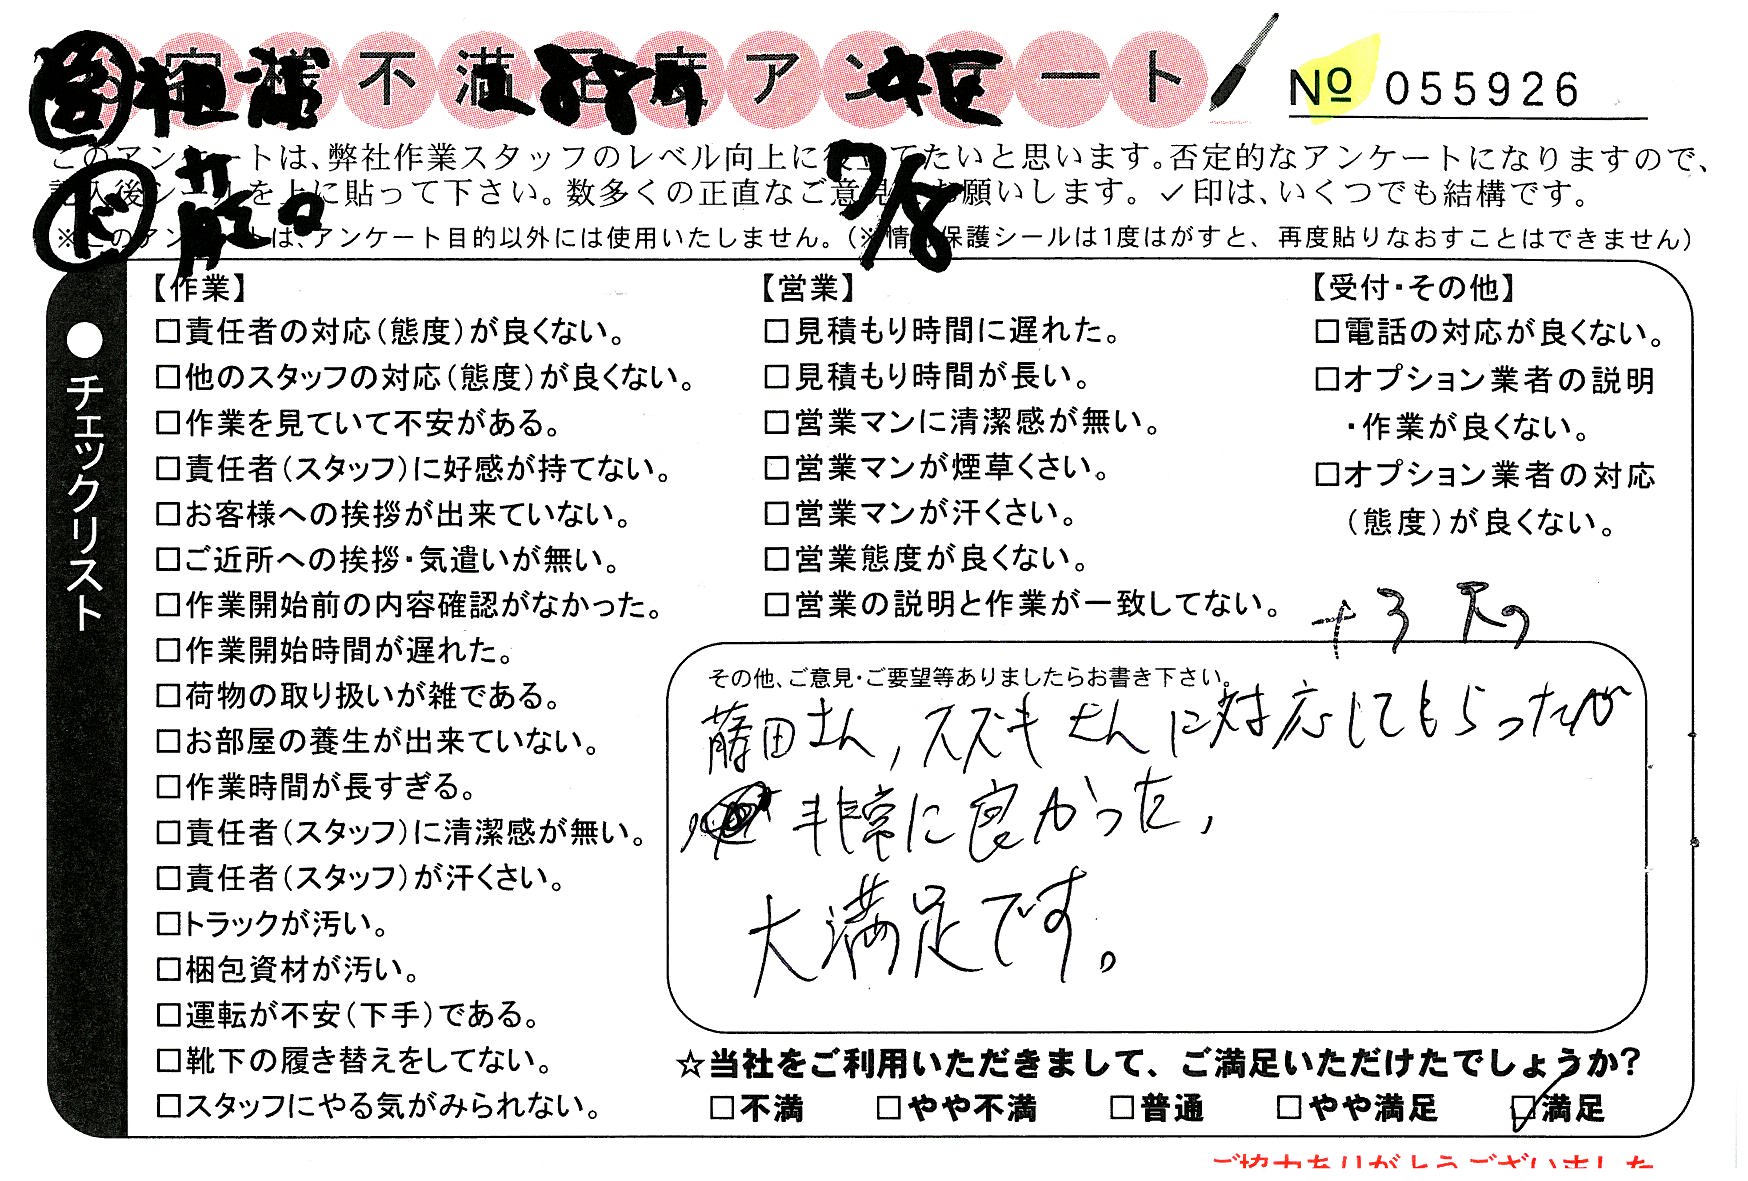 お客様不満足度アンケート
№ 055926
このアンケートは、弊社作業スタッフのレベル向上に役立てたいと思います。否定的なアンケートになりますので、
記入後シールを上に貼って下さい。数多くの正直なご意見をお願いします。✓印は、いくつでも結構です。
7/8
※このアンケートは、アンケート目的以外には使用いたしません。(※情報保護シールは1度はがすと、再度貼りなおすことはできません)
●チェックリスト
【作業】
□責任者の対応(態度)が良くない。
□他のスタッフの対応(態度)が良くない。
□作業を見ていて不安がある。
□責任者(スタッフ)に好感が持てない。
□お客様への挨拶が出来ていない。
□ご近所への挨拶・気遣いが無い。
□作業開始前の内容確認がなかった。
□作業開始時間が遅れた。
□荷物の取り扱いが雑である。
□お部屋の養生が出来ていない。
□作業時間が長すぎる。
□責任者(スタッフ)に清潔感が無い。
□責任者(スタッフ)が汗くさい。
□トラックが汚い。
□梱包資材が汚い。
□運転が不安(下手)である。
□靴下の履き替えをしてない。
□スタッフにやる気がみられない。
【営業】
□見積もり時間に遅れた。
□見積もり時間が長い。
□営業マンに清潔感が無い。
□営業マンが煙草くさい。
□営業マンが汗くさい。
□営業態度が良くない。
□営業の説明と作業が一致してない。
【受付・その他】
□電話の対応が良くない。
□オプション業者の説明
・作業が良くない。
□オプション業者の対応
(態度)が良くない。
その他、ご意見・ご要望等ありましたらお書き下さい。
藤田さん、スズキさんに対応してもらったが
非常に良かった、
大満足です。
☆当社をご利用いただきまして、ご満足いただけたでしょうか?
□不満 □やや不満 □普通 □やや満足 ☑満足
ご協力ありがとうございました